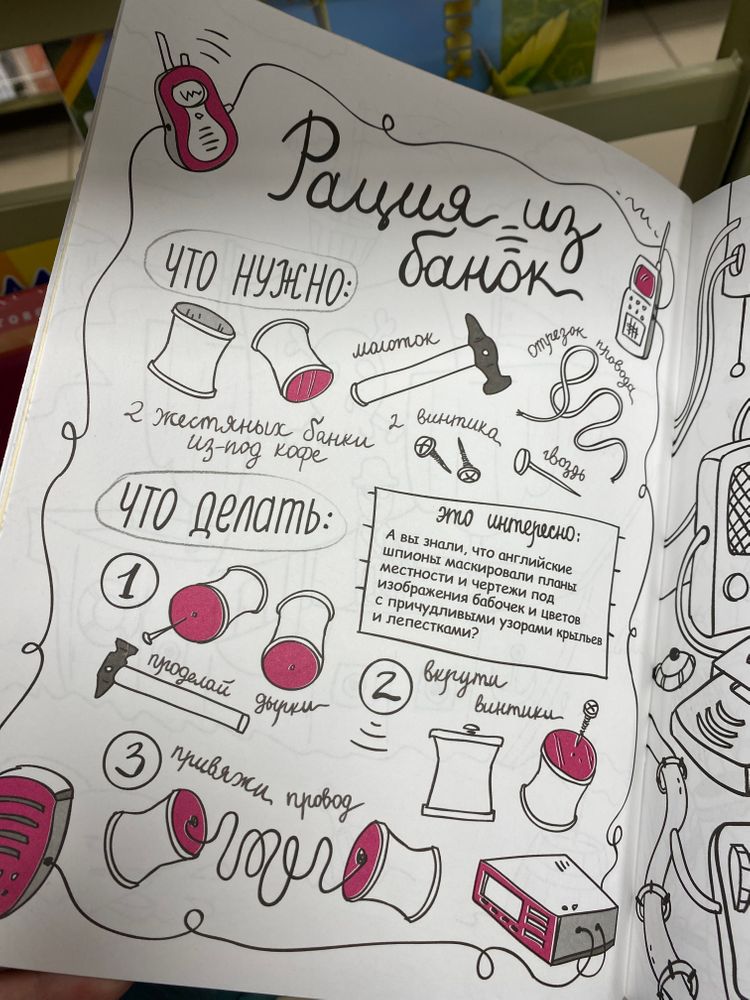 Рация из
банок
ЧТО НУЖНО:
2 жестяных банки
из-под кофе
молоток
2 винтика
отрезок провода
гвоздь
ЧТО ДЕЛАТЬ:
это интересно:
А вы знали, что английские
шпионы маскировали планы
местности и чертежи под
изображения бабочек и цветов
с причудливыми узорами крыльев
и лепестками?
1
проделай дырки
2
вкрути
винтики
3
привяжи провод